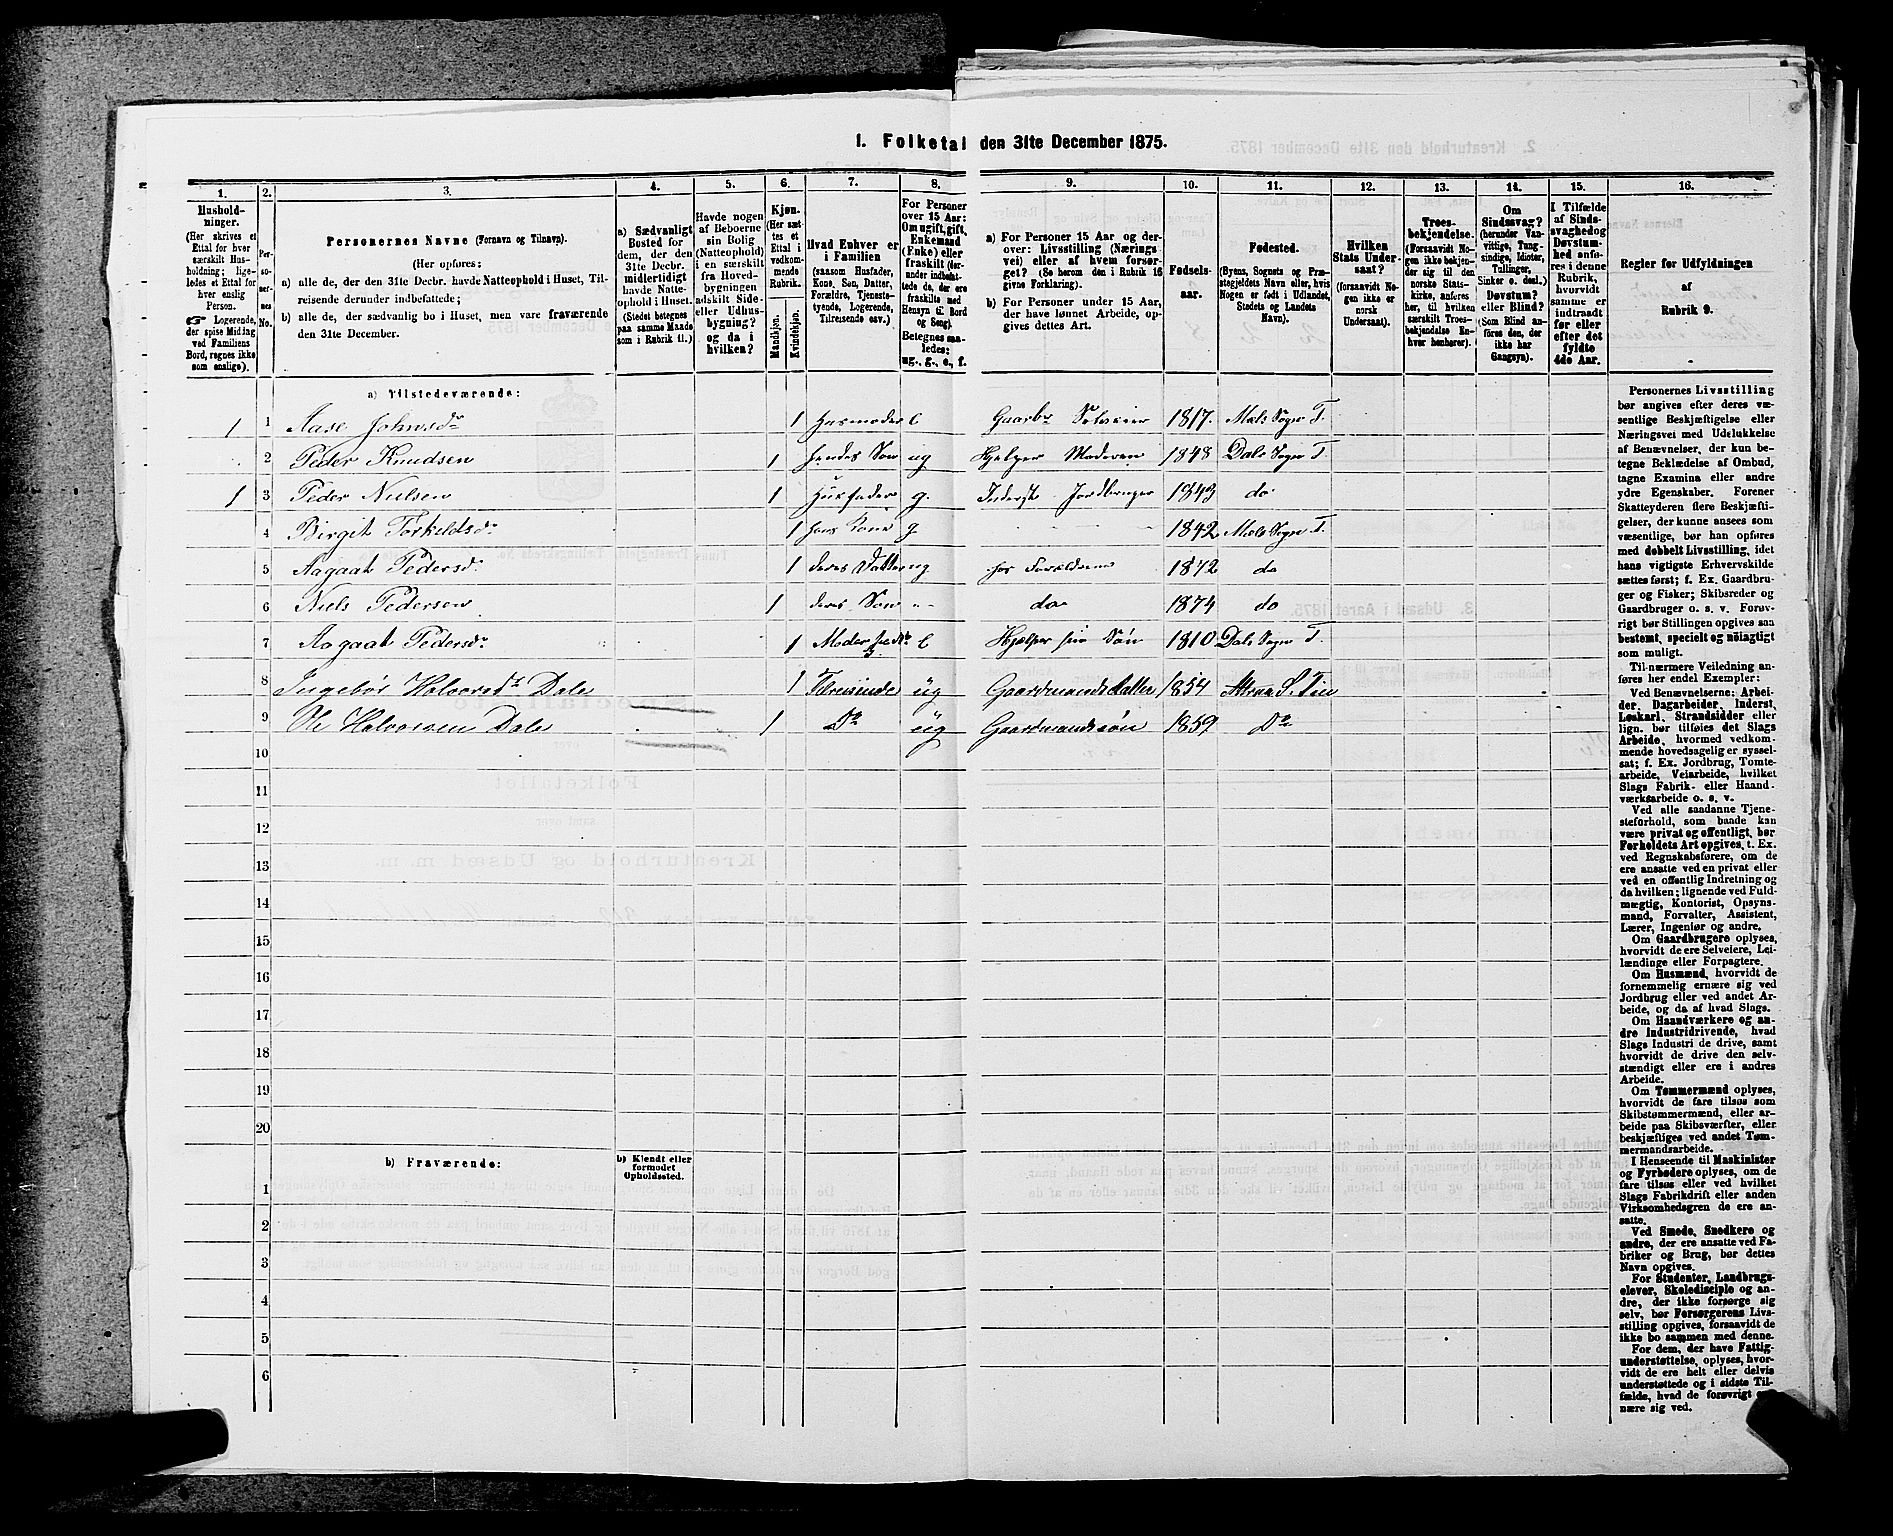 1. Folketal den 31te December 1875.
1. 2. 3. 4. 5. 6. 7. 8. 9. 10. 11. 12. 13. 14. 15. 16.
Husholdninger.
(Her skrives et
Ettal for hver
særskilt Husholdning;
ligeledes et Ettal
for hver
enslig
Person.
☞ Logerende,
der spise Middag
ved Familiens
Bord, regnes ikke
som enslige).
Personernes No.
Personernes Navne (Fornavn og Tilnavn).
(Her opføres:
a) alle de, der den 31te Decbr. havde Natteophold i Huset, Tilreisende derunder indbefattede;
b) alle de, der sædvanlig bo i Huset, men vare fraværende
den 31te December.
a) Sædvanligt
Bosted for
dem, der den
31te Decbr.
midlertidigt
havde Natteophold
i Huset.
(Stedet betegnes
paa samme Maade
som i Rubrik 11.)
Havde nogen
af Beboerne
sin Bolig
(Natteophold)
i en særskilt
fra Hovedbygningen
adskilt Side-
eller Udhusbygning?
og da i
hvilken?
Kjøn.
(Her sættes
et
Ettal i
vedkommende
Rubrik.
Mandkjøn.
Kvindekjøn.
Hvad Enhver er
i Familien
(saasom Husfader,
Kone, Søn, Datter,
Forældre, Tjenestetyende,
Logerende,
Tilreisende osv.)
For Personer
over 15 Aar:
Om ugift, gift,
Enkemand
(Enke) eller
fraskilt (derunder
indbefattede
de, der ere
fraskilte med
Hensyn til Bord
og Seng).
Betegnes saaledes:
ug., g., e., f.
a) For Personer 15 Aar og derover:
Livsstilling (Næringsvei)
eller af hvem forsørget?
(Se herom den i Rubrik 16
givne Forklaring).
b) For Personer under 15 Aar,
der have lønnet Arbeide, opgives
dettes Art.
Fødselsaar.
Fødested.
(Byens, Sognets og Præstegjeldets
Navn eller, hvis
Nogen er født i Udlandet,
Stedets og Landets
Navn).
Hvilken
Stats Undersaat?
(forsaavidt Nogen
ikke er
norsk
Undersaat).
Troesbekjendelse.
(Forsaavidt Nogen
ikke bekjender
sig til den
norske Statskirke,
anføres
her, til hvilken
særskilt Troesbekjendelse
Enhver
henhører).
Om
Sindssvag?
(herunder Vanvittige,
Tungsindige,
Idioter,
Tullinger,
Sinker o. desl.)
Døvstum?
eller Blind?
(Som Blind anføres
den, der
ikke har
Gangsyn).
I Tilfælde
af Sindssvaghed
og
Døvstumhed
anføres
i denne
Rubrik,
hvorvidt
samme er
indtraadt
før eller
efter det
fyldte
4de Aar.
Regler for Udfyldningen
af
Rubrik 9.
a) Tilstedeværende:
1 1 Aase Johnsdr 1 Husmoder e Gaardbr Selveier 1817. Mæls Sogn T.
2 Peder Knudsen 1 hendes Søn ug Hjelper Moderen 1848 Dals Sogn T
1 3 Peder Nielsen 1 Husfader g. Inderste Jordbruger 1843 do
4 Birgit Torkeldsdr 1 hans Kone g 1842 Mæls Sogn T.
5 Aagaat Pedersd. 1 deres Datter ug hos Forældrene 1872 do
6 Niels Pedersen 1 deres Søn " do 1874 do
7 Aagaat Pedersdr 1 e Hjælper sin Søn 1810 Dals Sogn T.
8 Ingebør Halvorsdr Dale 1 Tilreisende ug Gaardmandsdatter 1854 Atraa S. Tin
9 Ole Halvorsen Dale 1 Do ug Gaardmandssøn 1859 Do
10
11
12
13
14
15
16
17
18
19
20
b) Fraværende:
b) Kjendt eller
formodet
Opholdssted.
1
2
3
4
5
6
Personernes Livsstilling
bør angives efter deres væsentlige
Beskjæftigelse eller
Næringsvei med Udelukkelse
af Benævnelser, der kun betegne
Beklædelse af Ombud,
tagne Examina eller andre
ydre Egenskaber. Forener
Skatteyderen flere Beskjæftigelser,
der kunne ansees som
væsentlige, bør han opføres
med dobbelt Livsstilling, idet
hans vigtigste Erhvervskilde
sættes først; f. Ex. Gaardbruger
og Fisker; Skibsreder og
Gaardbruger o. s. v. Forøvrigt
bør Stillingen opgives saa
bestemt, specielt og nøiagtigt
som muligt.
Til nærmere Veiledning anføres
her endel Exempler:
Ved Benævnelserne: Arbeider,
Dagarbeider, Inderst,
Løskarl, Strandsidder eller
lign. bør tilføies det Slags
Arbeide, hvormed vedkommende
hovedsagelig er sysselsat;
f. Ex. Jordbrug, Tomtearbeide,
Veiarbeide, hvilket
Slags Fabrik- eller Haandværksarbeide
o. s. v.
Ved alle saadanne Tjenesteforhold,
som baade kan
være privat og offentligt, bør
Forholdets Art opgives, t. Ex.
ved Regnskabsførere, om de
ere ansatte ved en privat eller
ved en offentlig Indretning og
da hvilken; lignende ved Fuldmægtig,
Kontorist, Opsynsmand,
Forvalter, Assistent,
Lærer, Ingeniør og andre.
Om Gaardbrugere oplyses,
hvorvidt de ere Selveiere, Leilændinge
eller Forpagtere.
Om Husmænd, hvorvidt de
fornemmelig ernære sig ved
Jordbrug eller ved andet Arbeide,
og da af hvad Slags.
Om Haandværkere og andre
Industridrivende, hvad
Slags Industri de drive, samt
hvorvidt de drive den selvstændigt
eller ere i andres
Arbeide.
Om Tømmermænd oplyses,
hvorvidt de fare tilsøs som
Skibstømmermænd, eller arbeide
paa Skibsværfter, eller
beskjæftiges ved andet Tømmermandsarbeide.
I Henseende til Maskinister
og Fyrbødere oplyses, om de
fare tilsøs eller ved hvilket
Slags Fabrikdrift eller anden
Virksomhedsgren de ere ansatte.
Ved Smede, Snedkere og
andre, der ere ansatte ved Fabriker
og Brug, bør dettes
Navn opgives.
For Studenter, Landbrugselever,
Skoledisciple og andre,
der ikke forsørge sig
selv, bør Forsørgerens Livsstilling
opgives, forsaavidt de
ikke bo sammen med denne.
For dem, der have Fattigunderstøttelse,
oplyses, hvorvidt
de ere helt eller delvis
understøttede og i sidste Tilfælde,
hvad de forøvrigt ernære
sig ved.